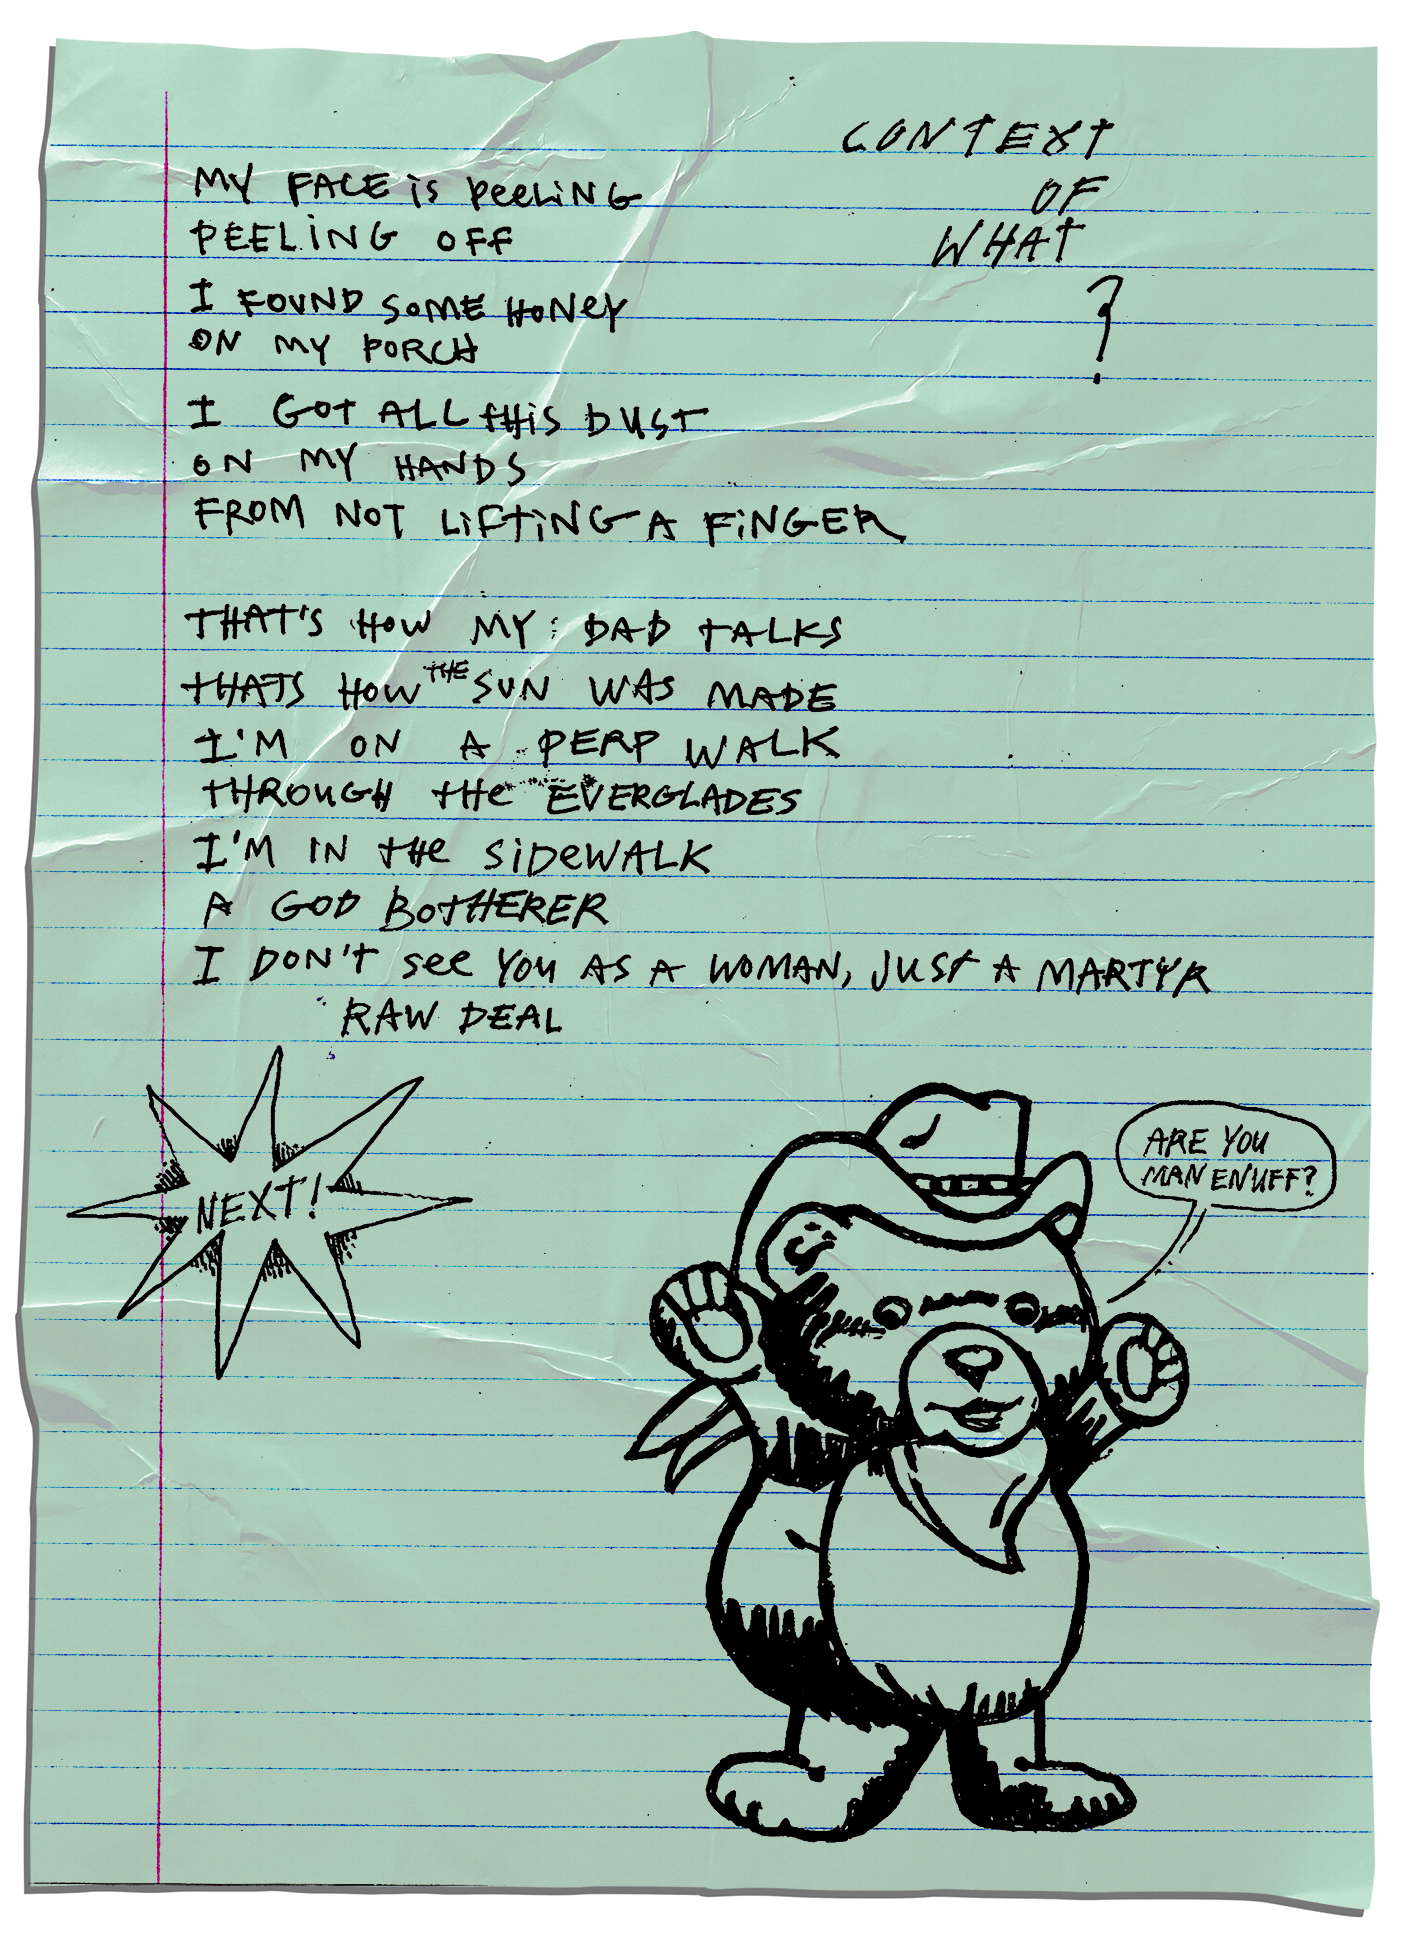 CONTEXT
OF
WHAT
?
MY FACE is PeeLiNG
PEELiNG OFF
I FOUND SOME HONeY
ON MY PORCH
I GOT ALL tHiS DUST
ON MY HANDS
FROM NOT LiFTiNG A FiNGER
THAT'S HOW MY DAD TALKS
THATS HOW THE SUN WAS MADE
I'M ON A PERP WALK
THROUGH tHe EVERGLADES
I'M IN tHe SiDeWALK
A GOD BOTHERER
I DON'T see YOU AS A WOMAN, JUST A MARTYR
RAW DEAL
NEXT!
ARE YOU
MAN ENUFF?